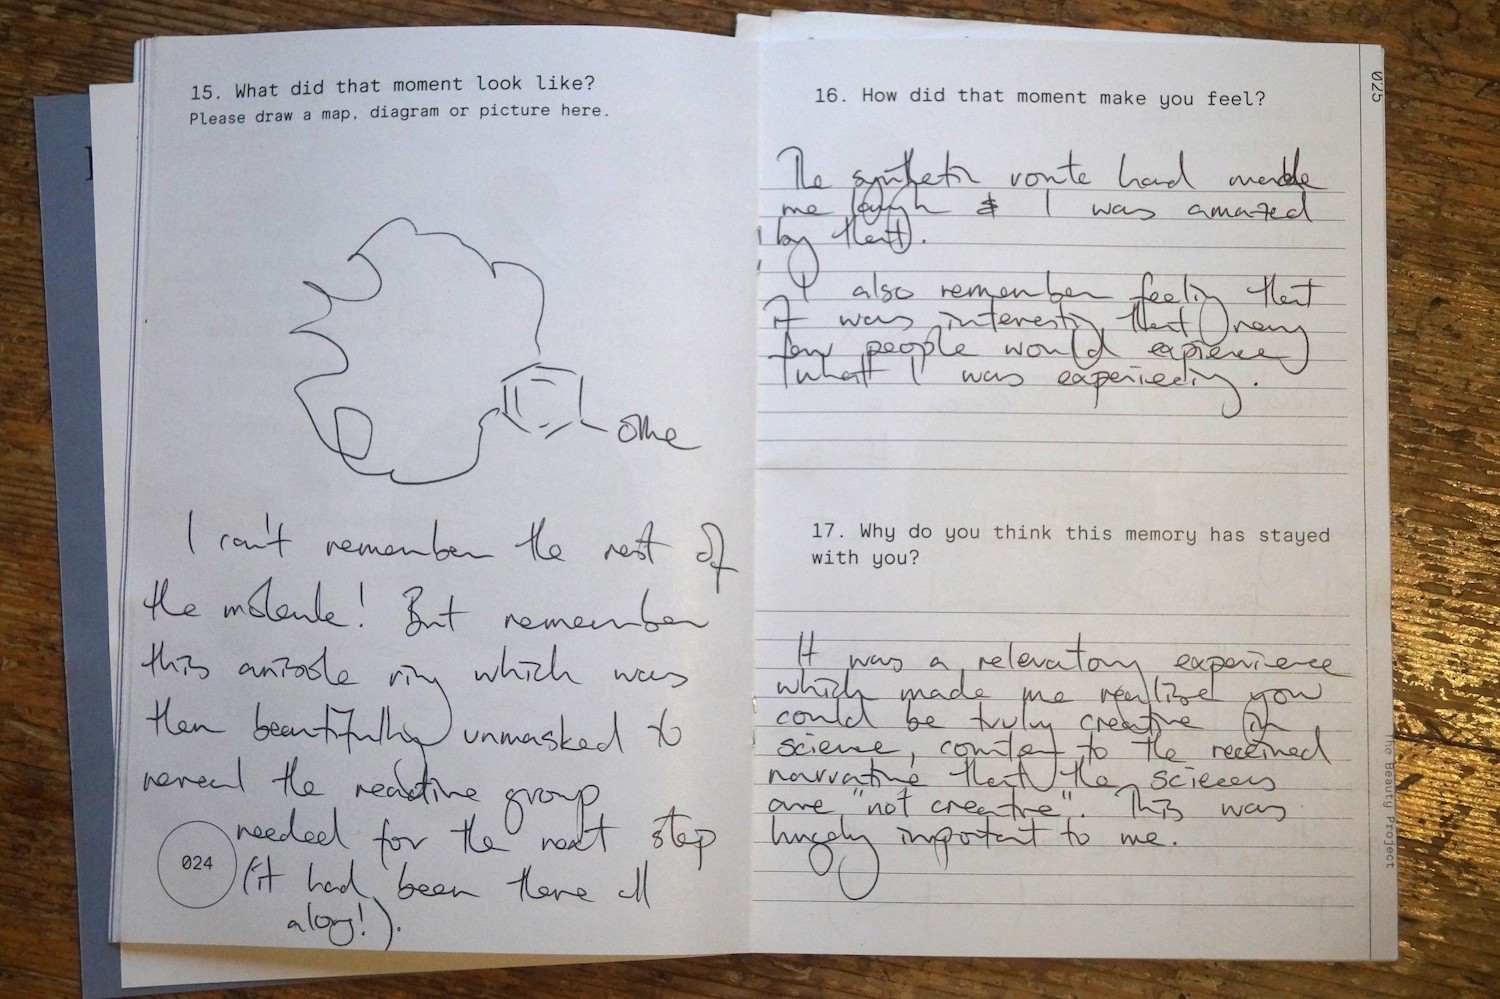 15. What did that moment look like?
Please draw a map, diagram or picture here.
OMe
I can't remember the rest of
the molecule! But remember
this anisole ring which was
then beautifully unmasked to
reveal the reactive group
needed for the next step
(it had been there all
along!).
024
16. How did that moment make you feel?
The synthetic route had made
me laugh & I was amazed
by that.
I also remember feeling that
it was interesting that very
few people would expierence
what I was experiencing.
17. Why do you think this memory has stayed
with you?
It was a relevatory experience
which made me realise you
could be truly creative in
science, counter to the received
narrative that the sciences
are "not creative". This was
hugely important to me.
025
The Beauty Project